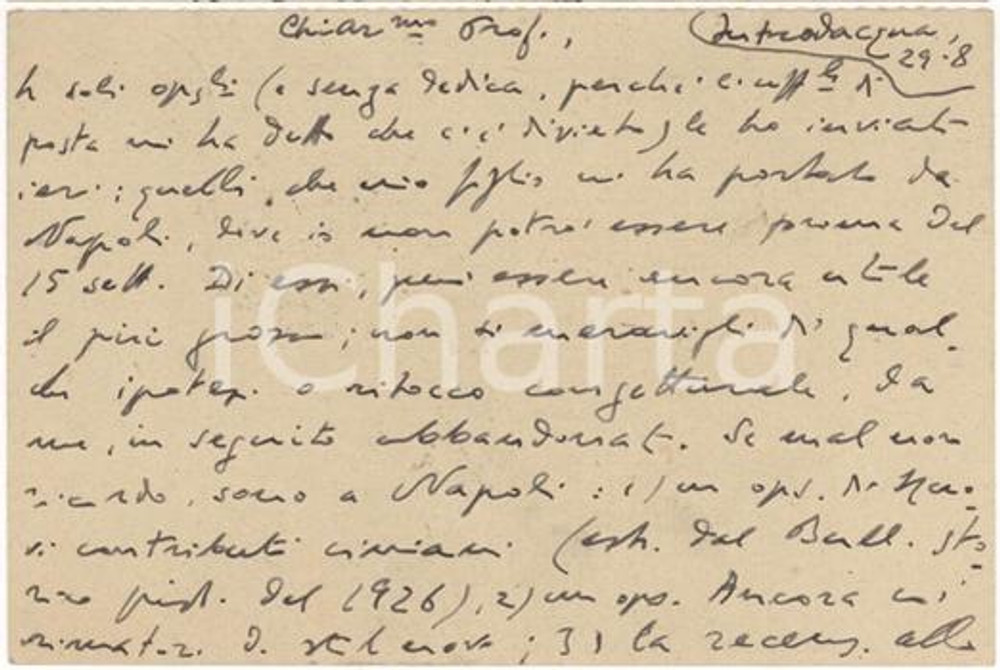 Chiar.mo Prof., Introdacqua,
29-8
soli opsli (e senza dedica, perché l'uff.le di
posta mi ha detto che c'è divieto) le ho inviati
ieri; quelli che mio figlio mi ha portato da
Napoli, dove io non potrò essere prima del
15 sett. Di essi, può essere ancora utile
il più grosso; non si meravigli di qual-
che ipotesi o ritocco congetturale, da
me, in seguito abbandonati. Se mal non
ricordo, sono a Napoli: 1) un ops. di Nuo-
vi contributi ciniani (estr. dal Bull. sto-
rico pist. del 1926), 2) un ops. Ancora sui
rimatori d. stil novo; 3) la recens. alla
iCharta